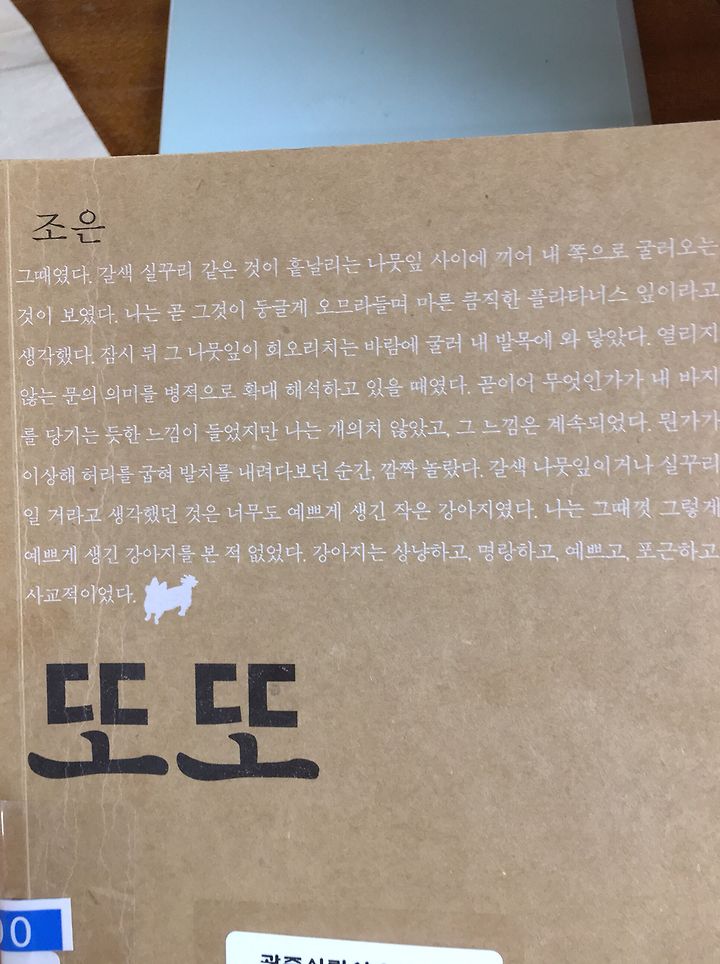 조은
그때였다. 갈색 실꾸리 같은 것이 흩날리는 나뭇잎 사이에 끼어 내 쪽으로 굴러오는
것이 보였다. 나는 곧 그것이 둥글게 오므라들며 마른 큼직한 플라타너스 잎이라고
생각했다. 잠시 뒤 그 나뭇잎이 회오리치는 바람에 굴러 내 발목에 와 닿았다. 열리지
않는 문의 의미를 병적으로 확대 해석하고 있을 때였다. 곧이어 무엇인가가 내 바지
를 당기는 듯한 느낌이 들었지만 나는 개의치 않았고, 그 느낌은 계속되었다. 뭔가가
이상해 허리를 굽혀 발치를 내려다보던 순간, 깜짝 놀랐다. 갈색 나뭇잎이거나 실꾸리
일 거라고 생각했던 것은 너무도 예쁘게 생긴 작은 강아지였다. 나는 그때껏 그렇게
예쁘게 생긴 강아지를 본 적 없었다. 강아지는 상냥하고, 명랑하고, 예쁘고, 포근하고
사교적이었다.
또또
00